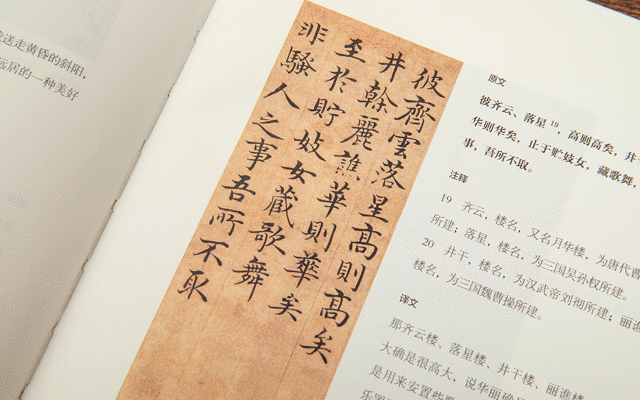 送走黄昏的斜阳,
远居的一种美好
彼齊雲落星髙則髙矣
井幹麗譙華則華矣
至於貯妓女藏歌舞
非騷人之事吾所不取
原文
彼齐云、落星19,高则高矣,井
华则华矣,止于贮妓女,藏歌舞,
事,吾所不取。
注释
19 齐云,楼名,又名月华楼,为唐代曹
所建;落星,楼名,为三国吴孙权所建。
20 井干,楼名,为汉武帝刘彻所建;丽谯
楼名,为三国魏曹操所建。
译文
那齐云楼、落星楼、井干楼、丽谯楼
大确是很高大,说华丽确
是用来安置些歌
乐